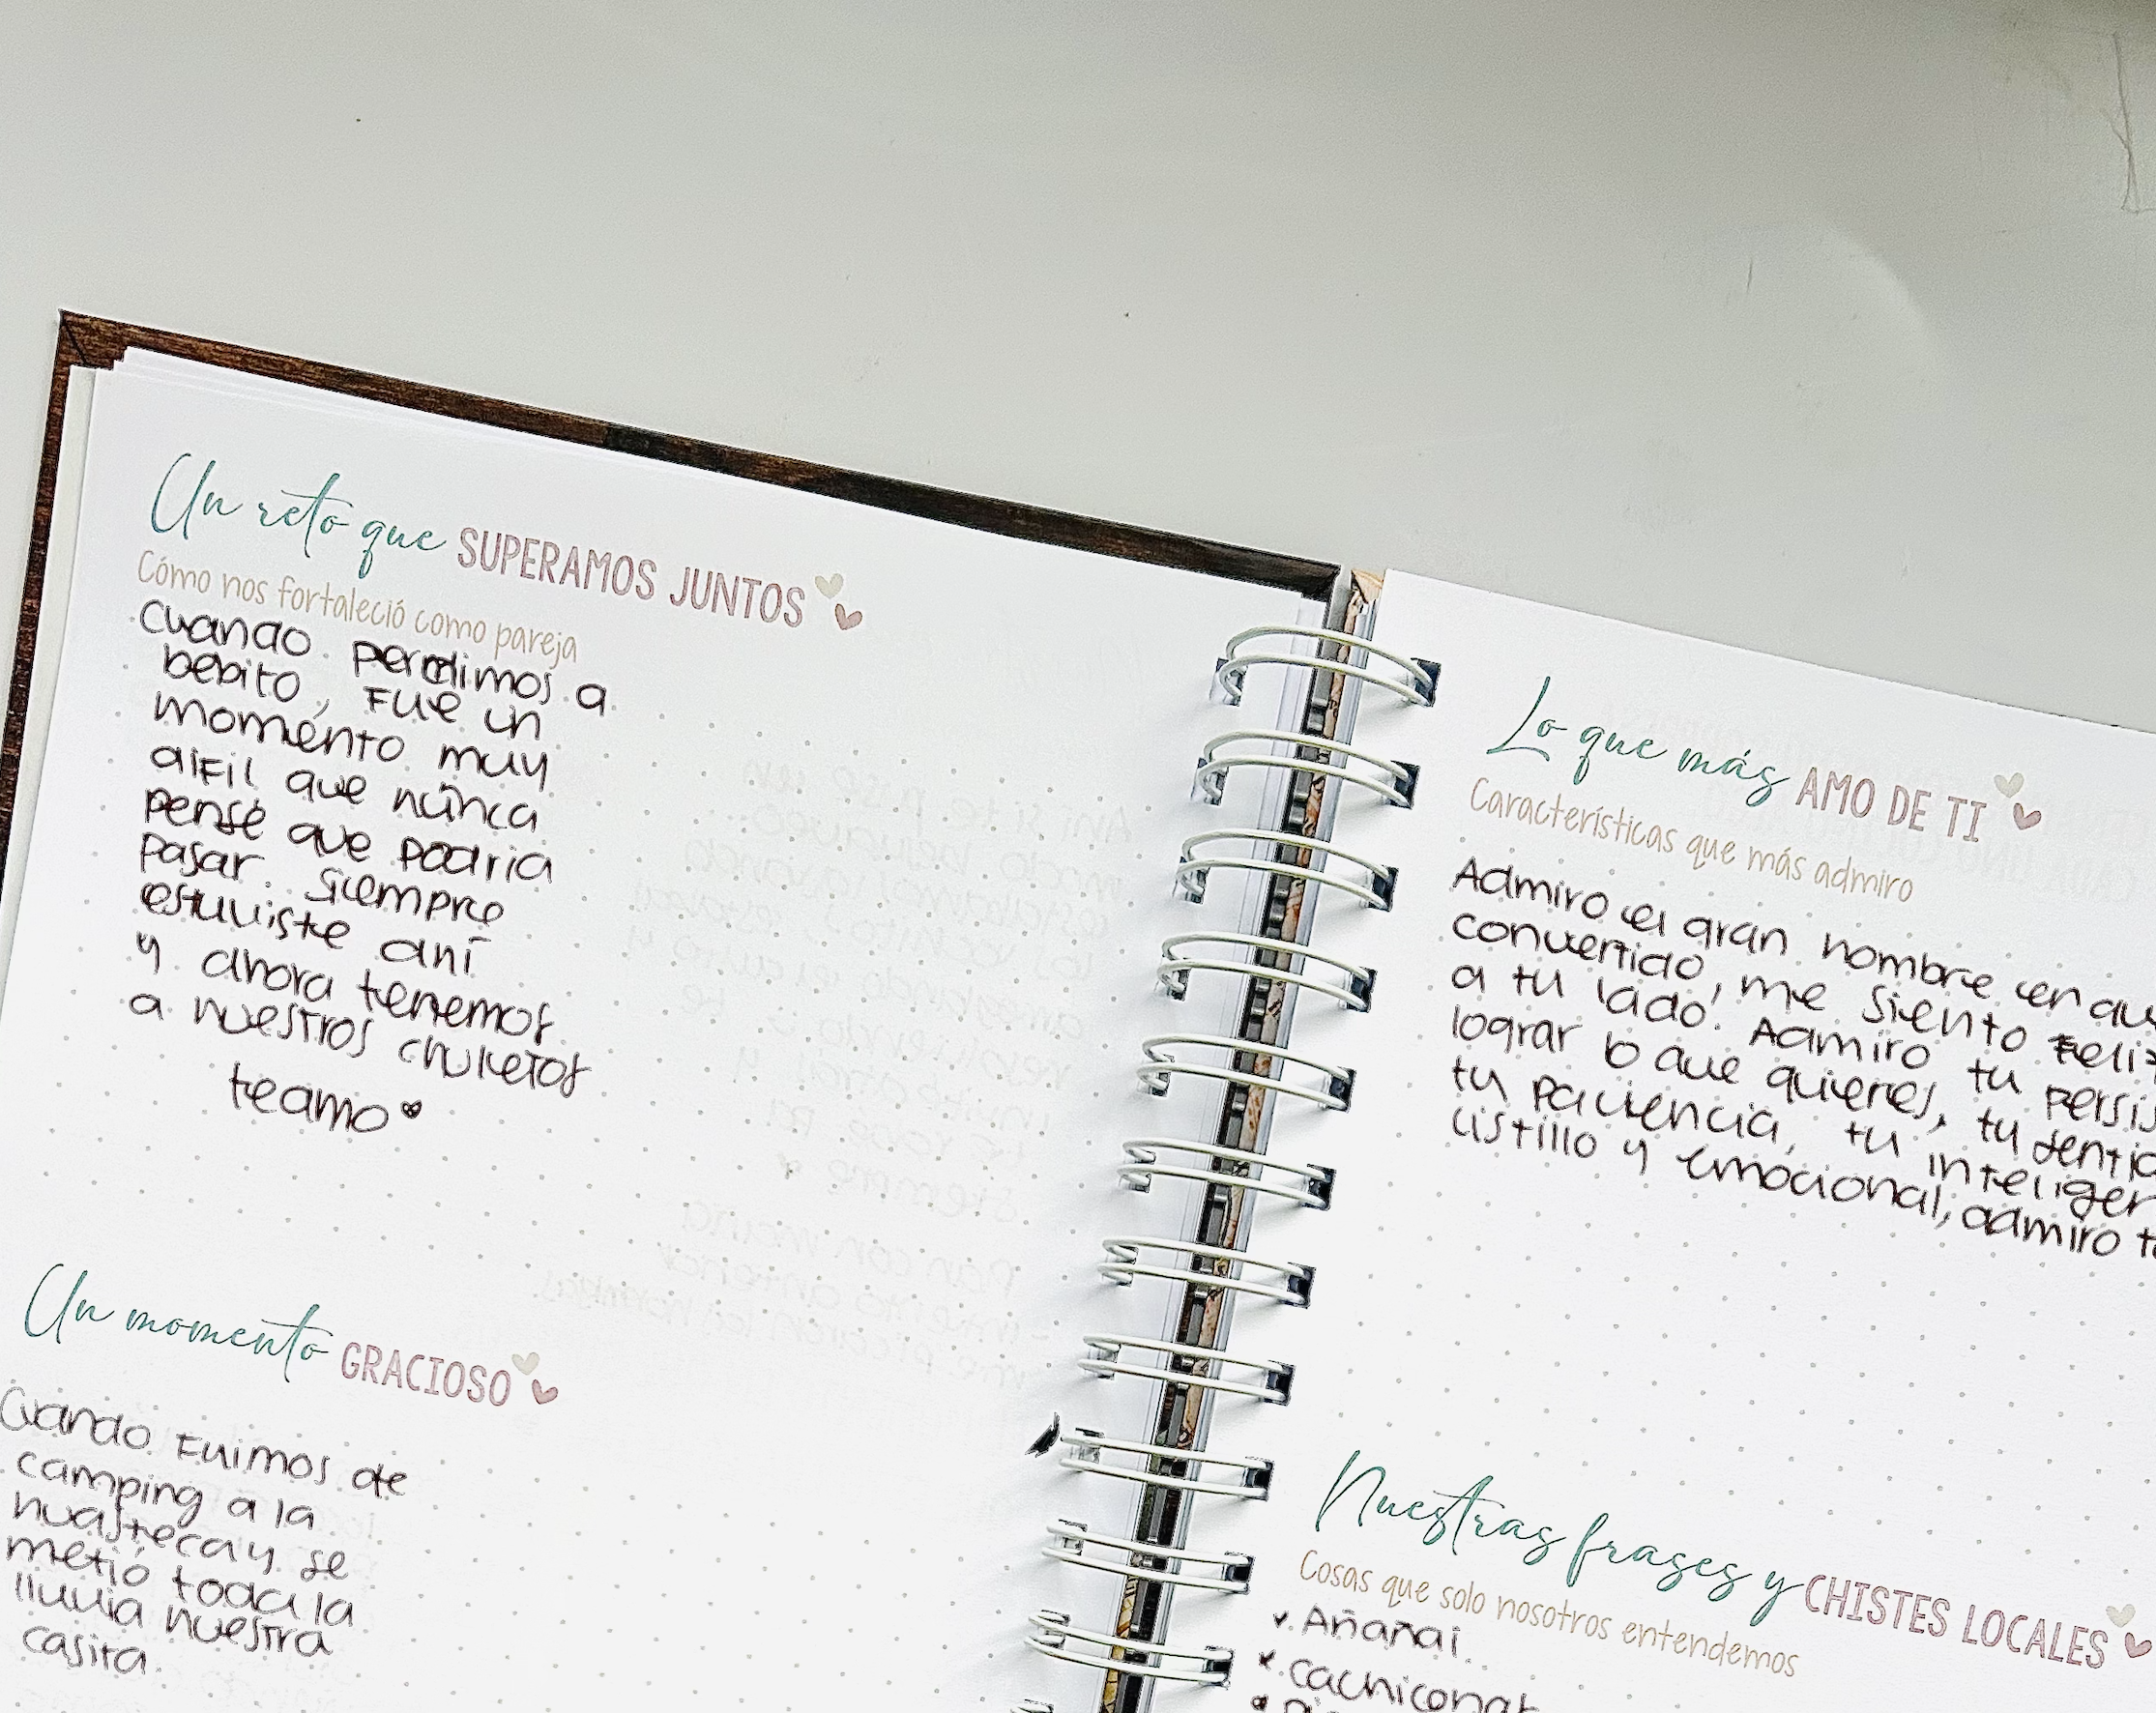 Un reto que SUPERAMOS JUNTOS
Cómo nos fortaleció como pareja
Cuando perdimos a
bebito, Fue un
momento muy
difil que nunca
pensé que podria
pasar. Siempre
estuviste ahí
y ahora tenemos
a nuestros chuletos
te amo
Un momento GRACIOSO
Cuando Fuimos de
camping a la
huasteca y se
metió toda la
lluvia nuestra
casita.
Lo que más AMO DE TI
Características que más admiro
Admiro el gran hombre en
convertido, me siento Feliz
a tu lado. Admiro tu
lograr lo que quieres, tu
tu paciencia, tu
listillo y emocional, admiro
Nuestras frases y CHISTES LOCALES
Cosas que solo nosotros entendemos
Añañai.